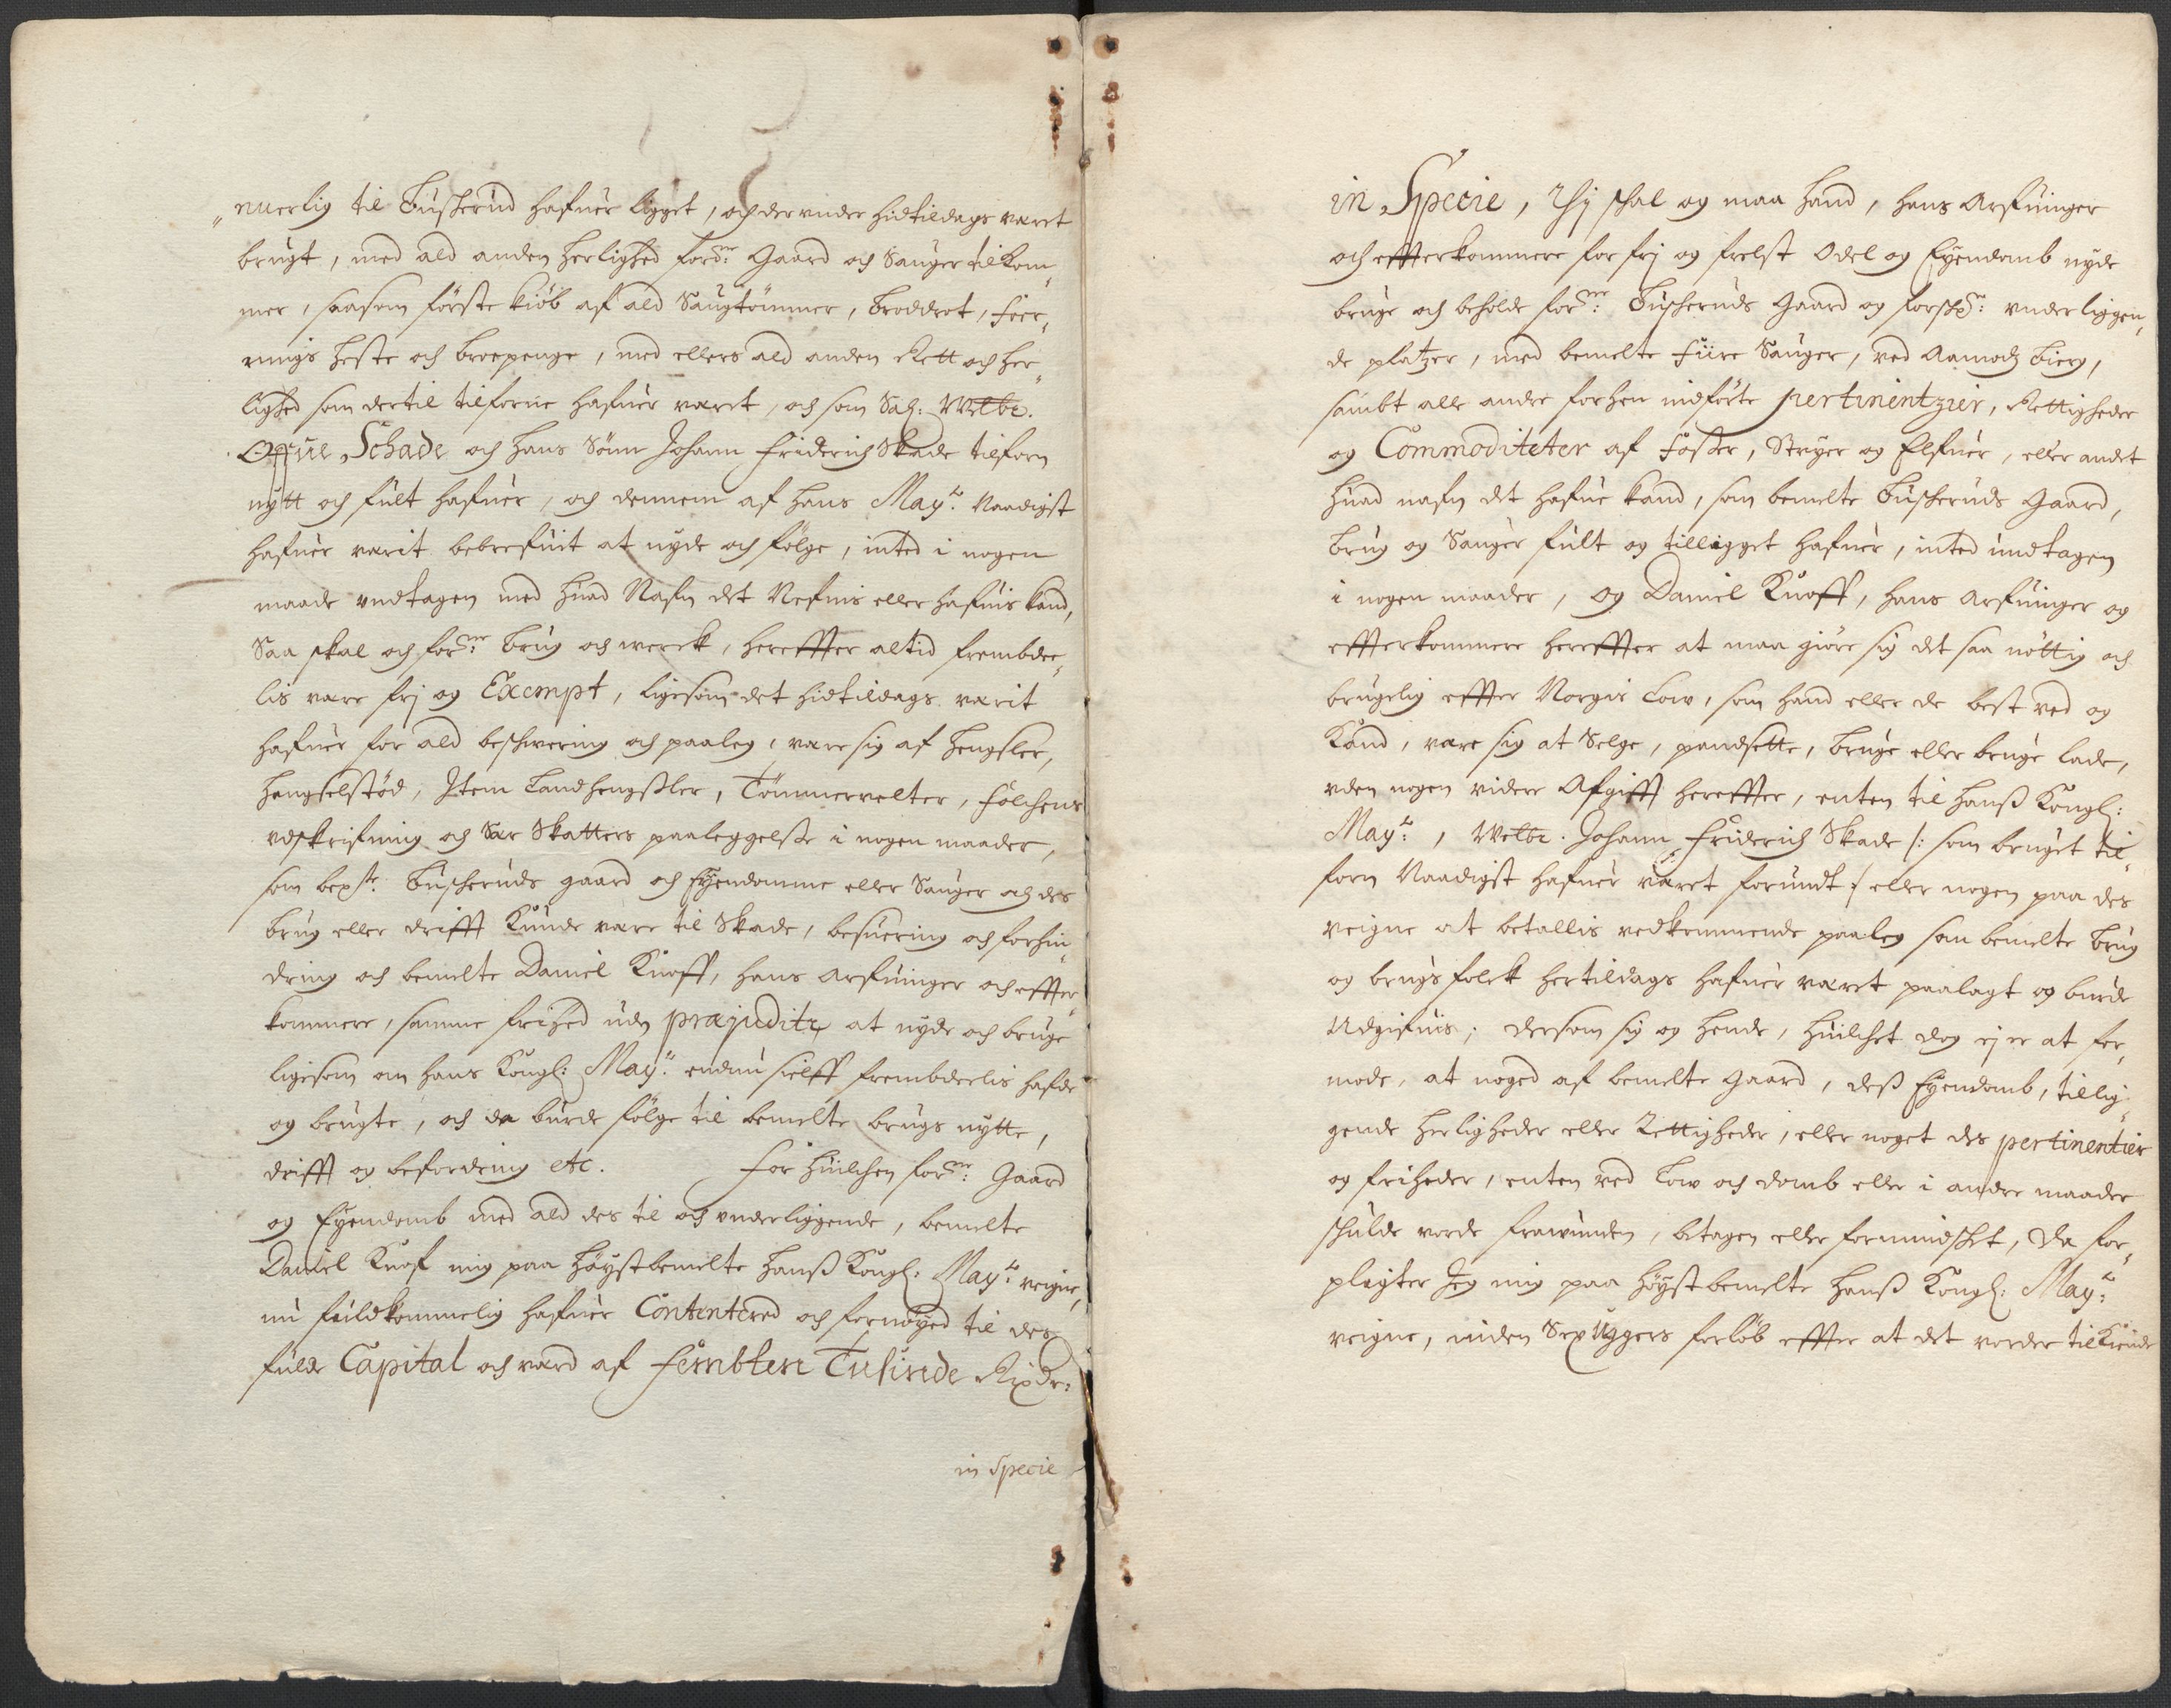 „nuerlig til Buskerud hafuer ligget, och der under hidtildags været
brugt, med ald anden herlighed ford:ne Gaard och Sauger tilkom„
mer, saasom förste kiöb af ald Saugtömmer, Broddrot, foer„
rings heste och broepenge, med ellers ald anden Rett och her„
lighed som dertil tilforne hafuer været, och som Sal: Welbr.
Offue Schade och hans Sönn Johann Friderich Skade tilforn
nytt och fult hafuer, och dennem af hans May:tt Naadigst
hafuer varit bebrefuit at nyde och fölge, inted i nogen
maade undtagen med huad Nafn det Nefnis eller hafuis kand,
Saa skal och for:ne brug och werck, hereffter altid frembdee„
lis være frj og Exempt, ligesom det hidtildags varit
hafuer for ald beschwering och paaleg, være sig af hengsler,
hengselstöd, Item Landhengsler, Tömmervelter, folchens
vdskrifning och Sær Skatters paaleggelse i nogen maader,
som bep:te Buscheruds gaard och Eyendomme eller Sauger och des
brug eller drifft kunde være til Skade, besuering och forhin„
dring och bemelte Daniel Knoff, hans Arfuinger och effter„
kommere, samme frihed uden præjuditz at nyde och bruge
ligesom om hans Kongl: May:tt endnu sielff frembdeelis hafde
og brugte, och da burde fölge til bemelte brugs nytte,
drifft og befordring etc. For huilchen for:ne Gaard
og Eyendomb med ald des til och underliggende, bemelte
Daniel Knof mig paa höystbemelte Hanß Kongl: May:tt veigne,
nu fuldkommelig hafuer Contentered och fornöyed til des
fulde Capital och værd af Fembten Tusinde Rixdr:
in Specie
in Specie, Thj schal og maa hand, hans Arfuinger
och effterkommere for frj og frelst Odel og Eyendomb nyde
bruge och beholde for:ne Buscheruds Gaard og forsch:ne underliggen„
de platzer, med bemelte fiire Sauger, ved Aamodz Bierg,
sambt alle andre forhen indförte pertinentzier, Rettigheder
og Commoditeter af fosser, Stryer og Elfuer, eller andet
huad nafn det hafue kand, som bemelte Buscheruds Gaard,
brug og Sauger fult og tilligget hafuer, inted undtagen
i nogen maader, og Daniel Knoff, hans Arfuinger og
effterkommere hereffter at maa giöre sig det saa nöttig och
brugelig effter Norgis Low, som hand eller de best ved og
kand, være sig at Selge, pandsette, bruge eller bruge lade,
uden nogen videre Afgifft hereffter, enten til Hanß Kongl:
May:tt, Welbr. Johann Friderich Skade /: som bruget til„
forn Naadigst hafuer været forundt :/ eller nogen paa des
veigne at betallis vedkommende paaleg som bemelte brug
og brugs folck hertildags hafuer været paalagt og burde
Udgifuis; dersom sig og hende, huilchet dog ej er at for„
mode, at noged af bemelte Gaard, deß Eyendomb, tillig„
gende herligheder eller Rettigheder, eller noget des pertinentier
og friheder, enten ved Low och domb eller i andre maader
schulde vorde frawunden, betagen eller formindschet, da for„
pligter Jeg mig paa höystbemelte Hanß Kongl: May:tt
veigne, inden Sex Uggers forlöb effter at det vorder tilkiende